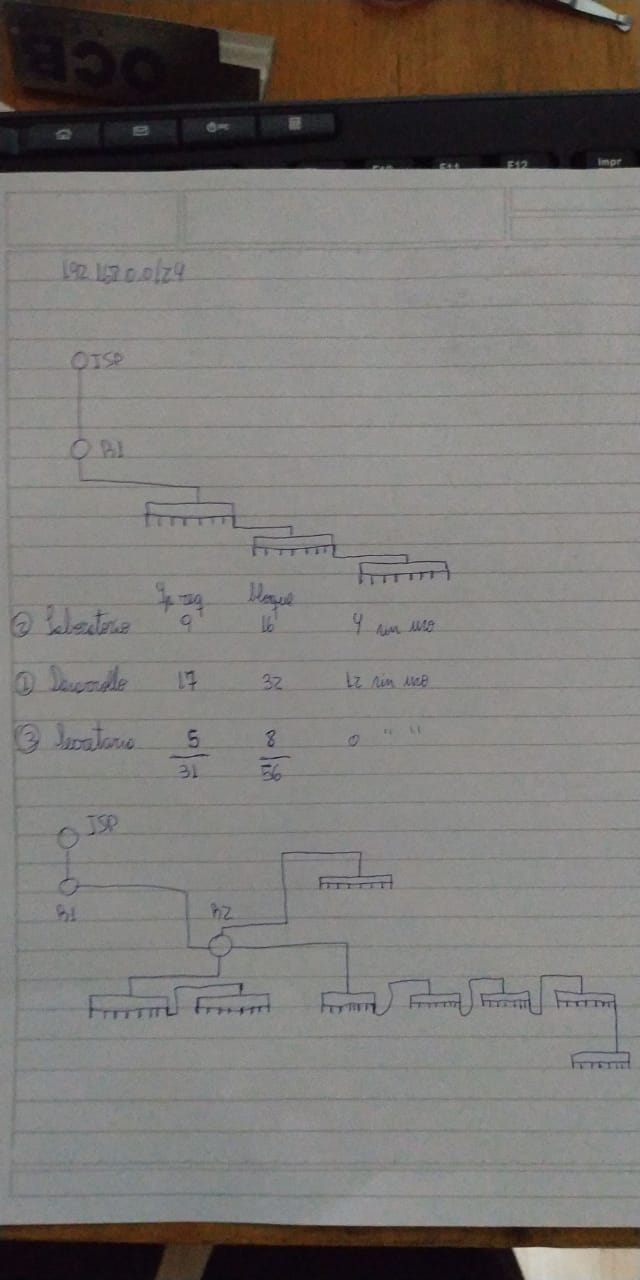 OCB
F10 F11 F12 Impr
192.168.0.0/24
ISP
R1
Ip req bloque
② Laboratorio 9 16 4 sin uso
① Desarrollo 17 32 12 sin uso
③ 5 8 0 " "
31 56
ISP
R1
R2